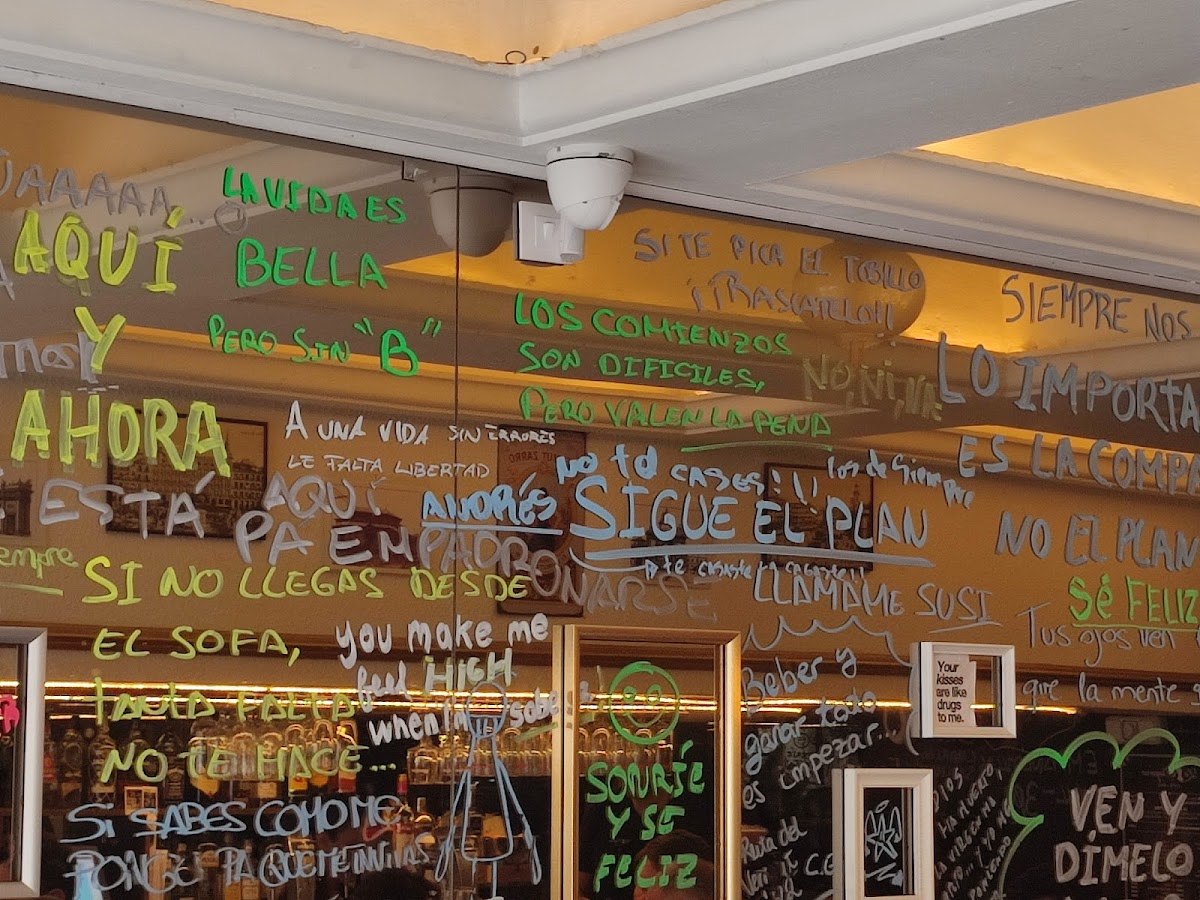 AQUÍ
Y
AHORA
LA VIDA ES
BELLA
PERO SIN "B"
SI TE PICA EL TOBILLO
¡¡RASCATELO!!
LOS COMIENZOS
SON DIFICILES,
PERO VALEN LA PENA
NO, NI, NA
SIEMPRE NOS
LO IMPORTA
ES LA COMPA
NO EL PLAN
A UNA VIDA SIN ERRORES
LE FALTA LIBERTAD
ESTÁ AQUÍ
PA EMPADRONARSE
ANDRÉS
NO td CASES!!!
los de Siempre
SIGUE EL PLAN
LLAMAME SUSI
Sé FELIZ
Tus ojos ven
que la mente
SI NO LLEGAS DESDE
EL SOFA,
TANTA FALTA
NO TE HACE...
you make me
feel HIGH
when I'm sober
SONRÍE
Y SE
FELIZ
Beber y
ganar todo
es empezar.
Your
kisses
are like
drugs
to me.
SI SABES COMO ME
PONGO PA QUE ME INVITAS
DIOS
HA MUERTO,
VEN Y
DÍMELO